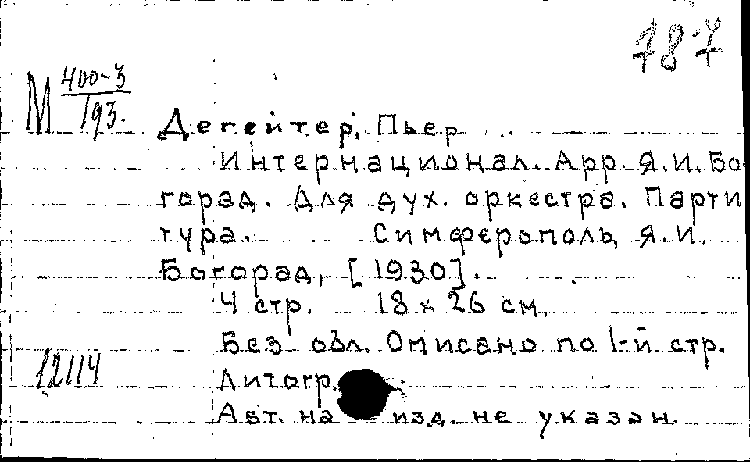 787
М 400-3
193.
Дегейтер, Пьер
Интернационал. Арр. Я.И. Бо-
горад. Для дух. оркестра. Парти
тура. Симферополь, Я.И.
Богорад, [1930].
4 стр. 18 x 26 см.
Без обл. Описано по 1-й стр.
12114
Литогр.
Авт. на изд. не указан.